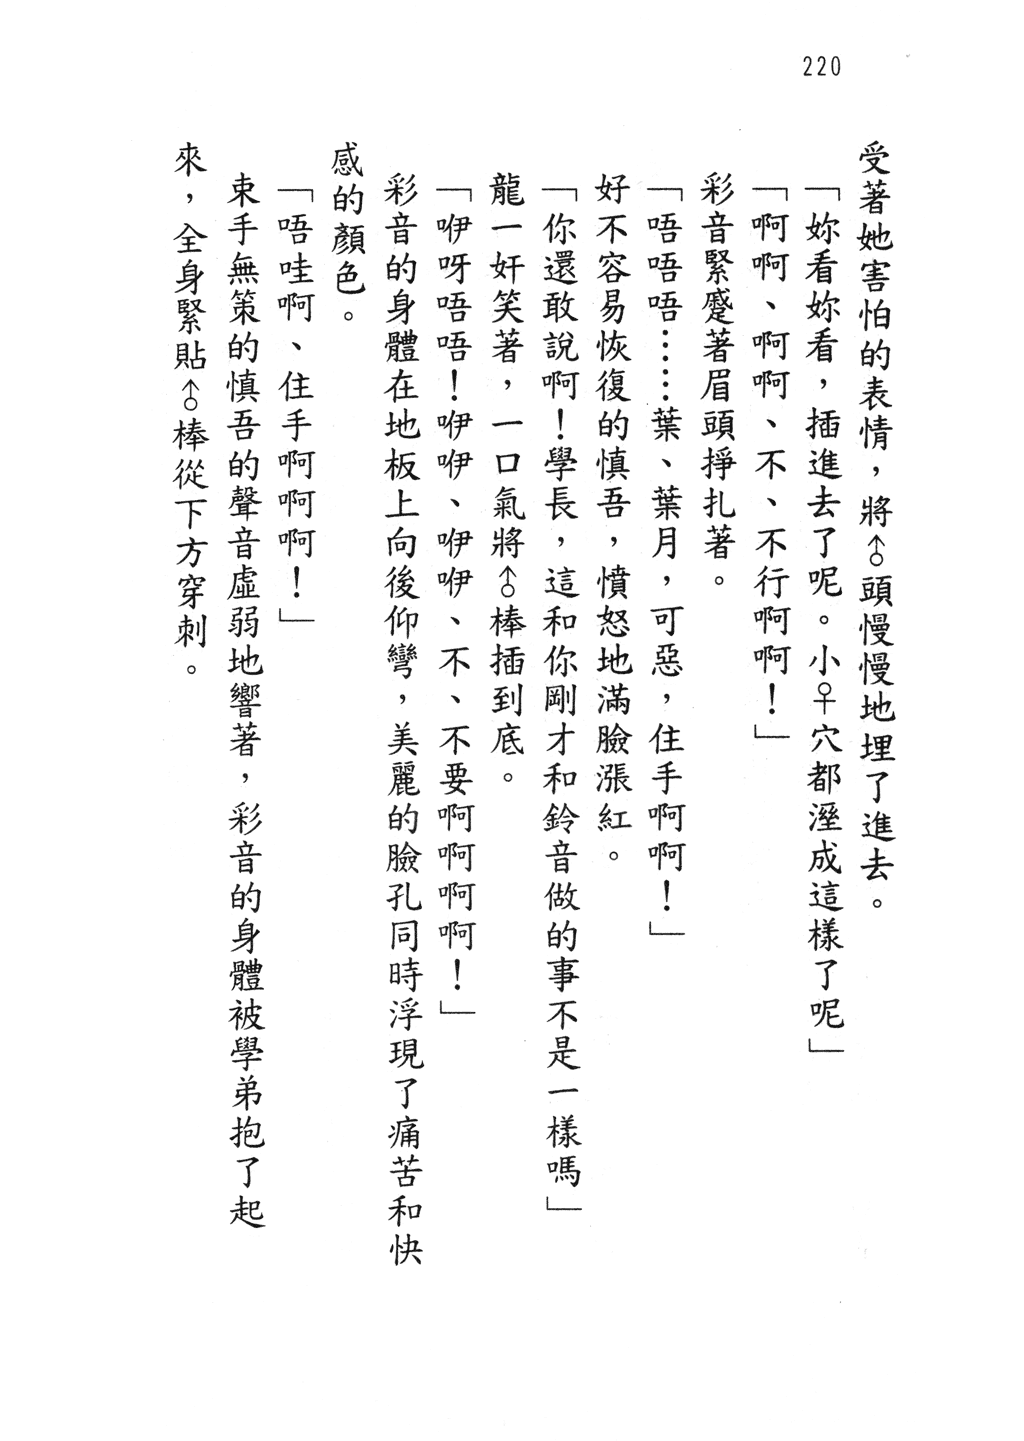 220
受著她害怕的表情，將♂頭慢慢地埋了進去。
「妳看妳看，插進去了呢。小♀穴都溼成這樣了呢」
「啊啊、啊啊、不、不行啊啊！」
彩音緊蹙著眉頭掙扎著。
「唔唔唔……葉、葉月，可惡，住手啊啊！」
好不容易恢復的慎吾，憤怒地滿臉漲紅。
「你還敢說啊！學長，這和你剛才和鈴音做的事不是一樣嗎」
龍一奸笑著，一口氣將♂棒插到底。
「咿呀唔唔！咿咿、咿咿、不、不要啊啊啊啊！」
彩音的身體在地板上向後仰彎，美麗的臉孔同時浮現了痛苦和快
感的顏色。
「唔哇啊、住手啊啊啊！」
束手無策的慎吾的聲音虛弱地響著，彩音的身體被學弟抱了起
來，全身緊貼♂棒從下方穿刺。